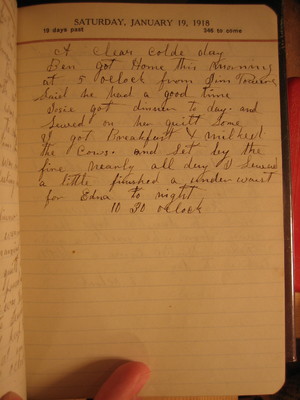 SATURDAY, JANUARY 19, 1918
19 days past 346 to come
A Clear Colde day
Ben got Home this morning
at 5 oclock from Jim
Said he had a good time
Josie got dinner to day. and
Sewed on her quilt some
I got Breakfast & milked
the Cows. and Set by the
fire nearly all day I Sewed
a little finished a under waist
for Edna to night
10 30 oclock